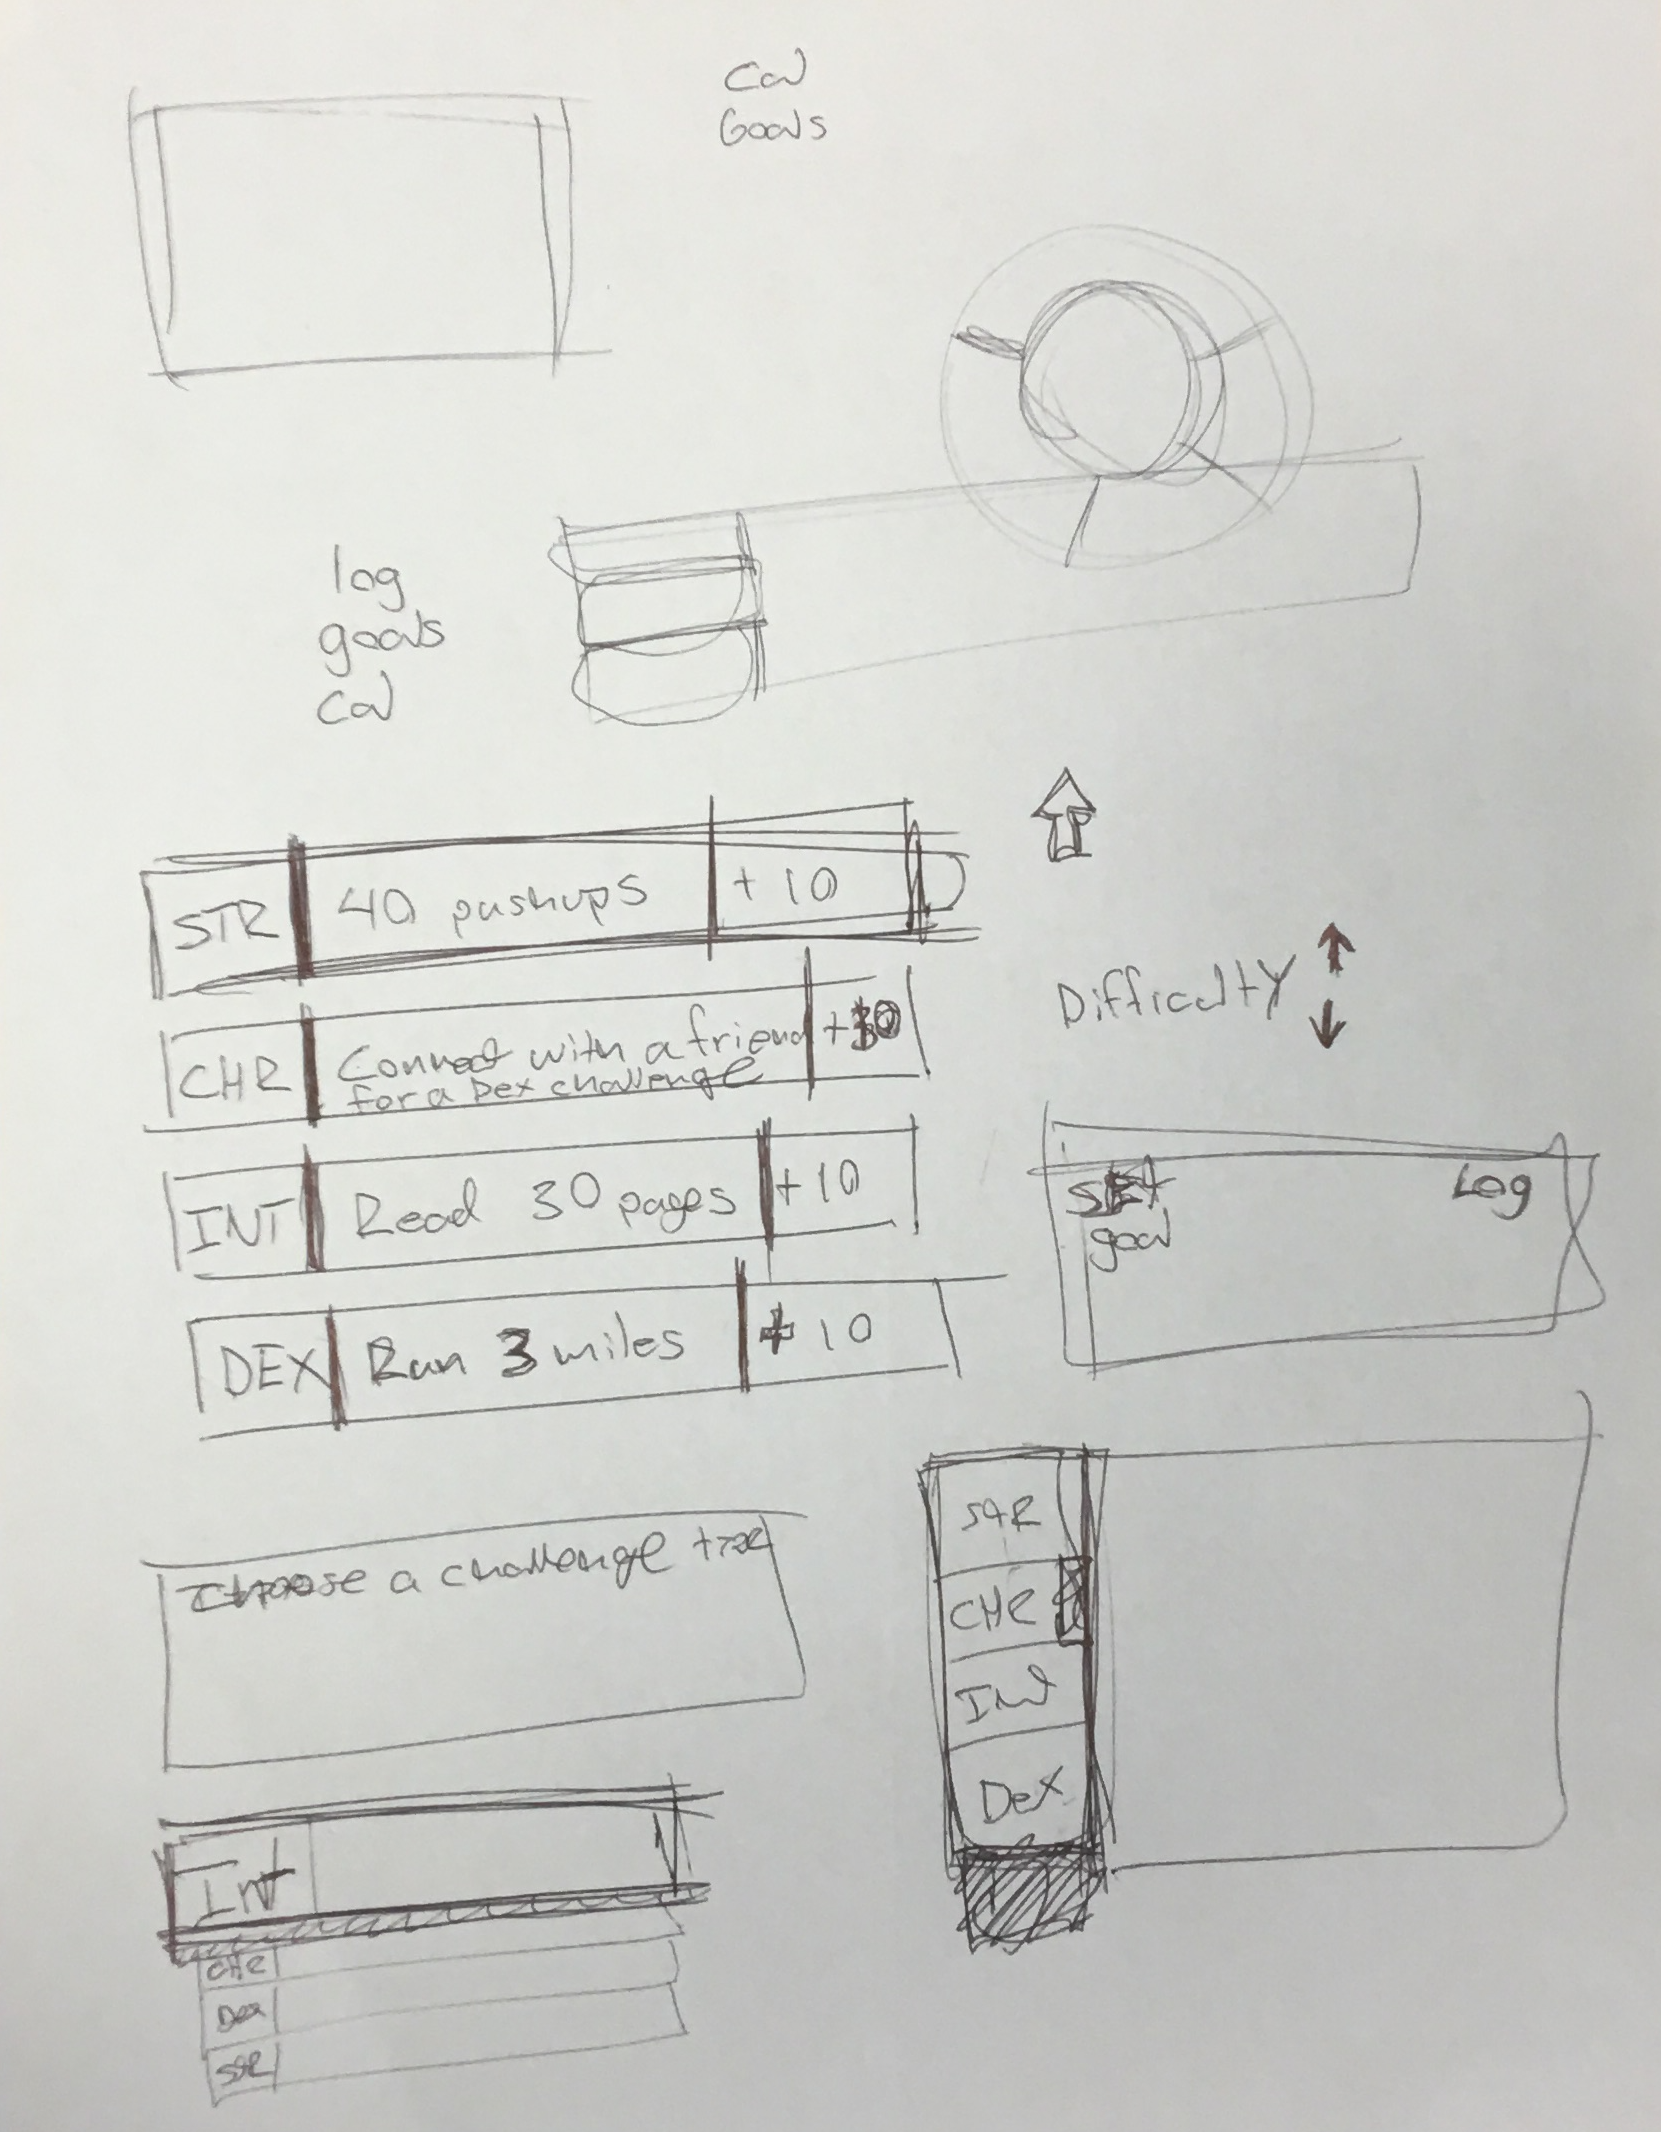 Cal
Goals
log
goals
Cal
STR 40 pushups + 10
CHR Connect with a friend
for a Dex challenge
INT Read 30 pages +10
DEX Run 3 miles + 10
Difficulty ↑
↓
Set Log
goal
Choose a challenge
STR
CHR
Int
Dex
Int
CHR
Dex
STR